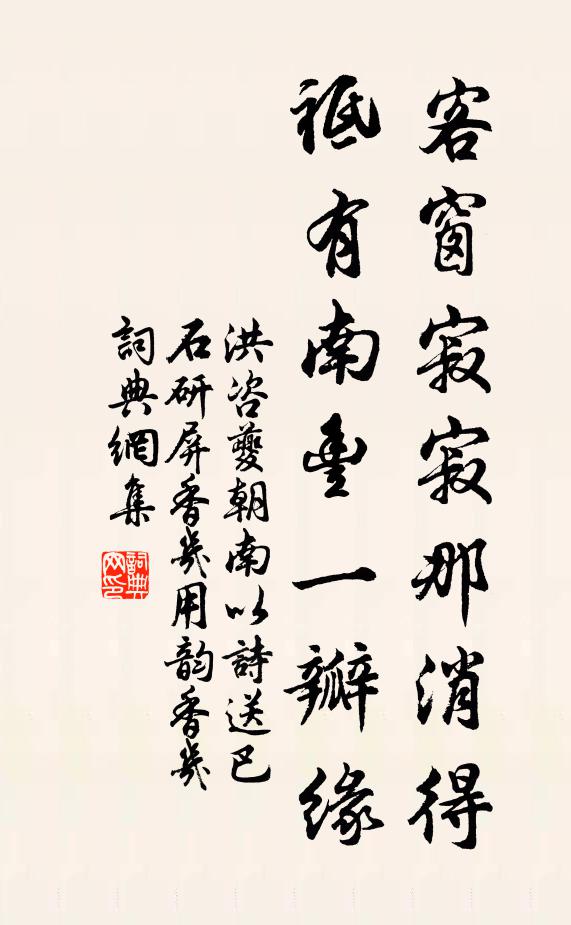 客窗寂寂那消得
祗有南豐一瓣緣
洪咨夔朝南以詩送巴
石研屏香几用韵香几
詞典網集
詞典
网印